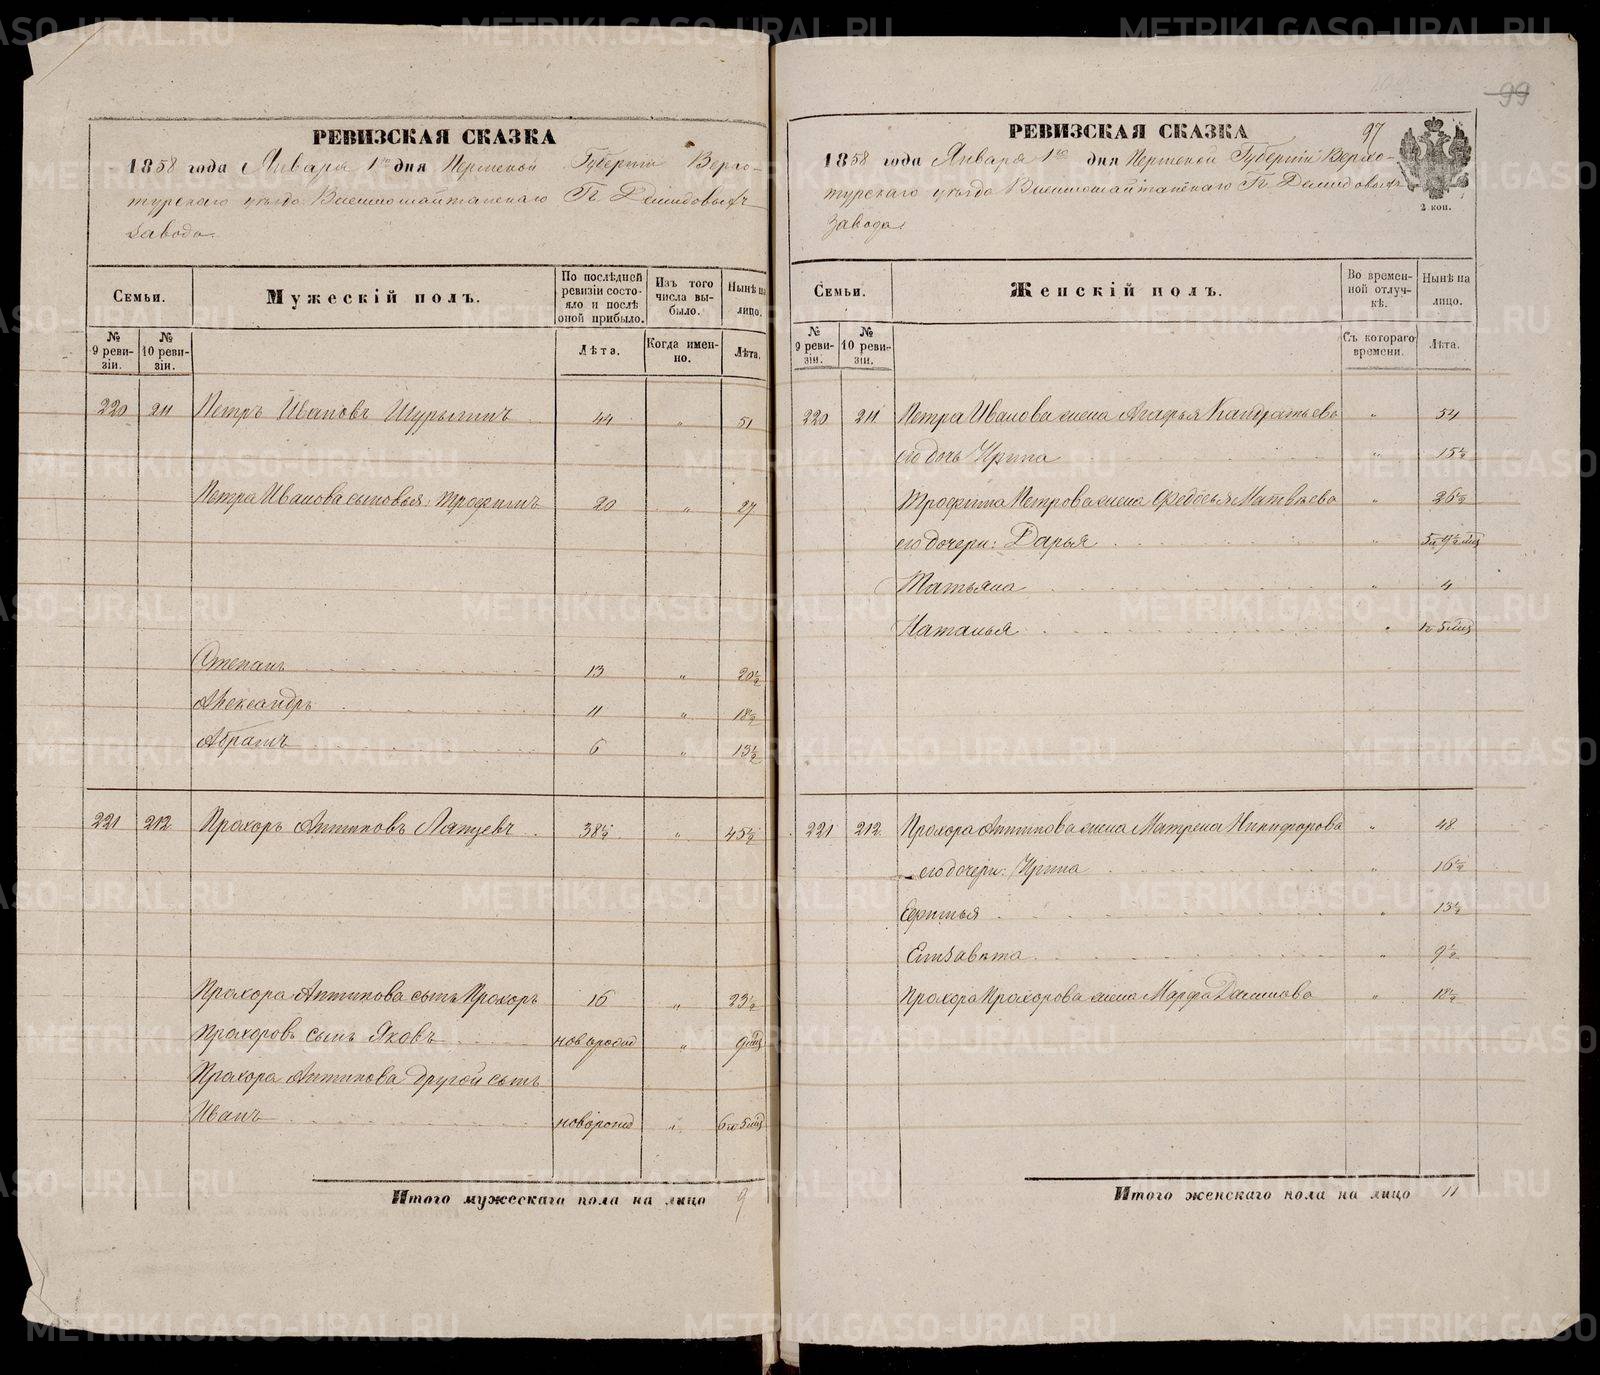 РЕВИЗСКАЯ СКАЗКА
1858 года Января 1го дня Пермской Губерніи Верхо-
турскаго уѣзда Висимошайтанскаго Гг. Демидовыхъ
завода.
Семьи.
Мужескій полъ.
По послѣдней ревизіи состояло и послѣ оной прибыло.
Изъ того числа выбыло.
Нынѣ на лицо.
№ 9 ревизіи.
№ 10 ревизіи.
Лѣта.
Когда именно.
Лѣта.
220 211 Петръ Ивановъ Шурыгинъ 44 " 51
Петра Иванова сыновья: Трофимъ 20 " 27
Степанъ 13 " 20½
Александръ 11 " 18½
Абрамъ 6 " 13½
221 212 Прохоръ Антиповъ Лапцевъ 38½ " 45½
Прохора Антипова сынъ Прохоръ 16 " 23½
Прохоровъ сынъ Яковъ новорожд " 9 мѣц
Прохора Антипова другой сынъ
Иванъ новорожд " 6 и 5 мѣц
Итого мужескаго пола на лицо 9
99
97
РЕВИЗСКАЯ СКАЗКА
2 коп.
1858 года Января 1го дня Пермской Губерніи Верхо-
турскаго уѣзда Висимошайтанскаго Гг. Демидовыхъ
завода.
Семьи.
Женскій полъ.
Во временной отлучкѣ.
Нынѣ на лицо.
№ 9 ревизіи.
№ 10 ревизіи.
Съ котораго времени.
Лѣта.
220 211 Петра Иванова жена Агафья Кандратьева " 54
его дочь Ирина " 15½
Трофима Петрова жена Федосья Матвѣева " 26½
его дочери: Дарья " 5 и 9½ мѣц
Татьяна " 4
Наталья " 1 и 5 мѣц
221 212 Прохора Антипова жена Матрена Никифорова " 48
его дочери: Ирина " 16½
Ефимья " 13½
Елизавѣта " 9½
Прохора Прохорова жена Марфа Данилова " 18½
Итого женскаго пола на лицо 11
METRIKI.GASO-URAL.RU